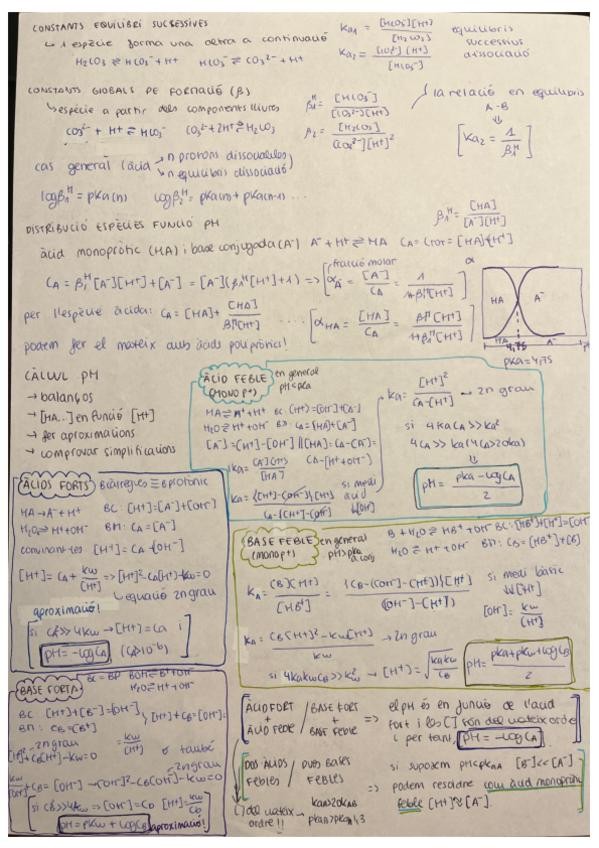 CONSTANTS EQUILIBRI SUCCESSIVES
↳ 1 espècie forma una altra a continuació
H2CO3 ⇌ HCO3- + H+ HCO3- ⇌ CO3 2- + H+
Ka1 = [HCO3-][H+] / [H2CO3]
Ka2 = [CO3 2-][H+] / [HCO3-]
equilibris successius dissociació
CONSTANTS GLOBALS DE FORMACIÓ (β)
↳ espècie a partir dels components lliures
CO3 2- + H+ ⇌ HCO3- CO3 2- + 2H+ ⇌ H2CO3
β1H = [HCO3-] / [CO3 2-][H+]
β2 = [H2CO3] / [CO3 2-][H+]^2
la relació en equilibris
A-B
⇓
[Ka2 = 1 / β1H]
cas general (àcid → n protons dissociables)
↳ n equilibris dissociació
logβ1H = pKa(n) logβ2H = pKa(n) + pKa(n-1) ...
DISTRIBUCIÓ ESPÈCIES FUNCIÓ PH
β1H = [HA] / [A-][H+]
àcid monopròtic (HA) i base conjugada (A-) A- + H+ ⇌ HA
CA = β1H[A-][H+] + [A-] = [A-](β1H[H+]+1) =>
fracció molar
[αA- = [A-] / CA = 1 / 1+β1H[H+]]
per l'espècie àcida: CA = [HA] + [HA] / β1H[H+] ....
[αHA = [HA] / CA = β1H[H+] / 1+β1H[H+]]
podem fer el mateix amb àcids polipròtics!
α
HA A-
HA 4,75 A- pH
pKa=4,75
CÀLCUL pH
→ balanços
→ [HA...] en funció [H+]
→ fer aproximacions
→ comprovar simplificacions
ÀCID FEBLE (MONO P+) en general pH<pKa
HA ⇌ A- + H+ BC: [H+]=[OH-]+[A-]
H2O ⇌ H+ + OH- BM: CA=[HA]+[A-]
[A-]=[H+]-[OH-] || [HA]=CA-[A-]=
CA-[H++OH-]
Ka = [A-][H+] / [HA]
Ka = ([H+]-[OH-])[H+] / CA-[H+]-[OH-]
si medi àcid ↓[OH-]
Ka = [H+]^2 / CA-[H+] ~ 2n grau
si 4KaCA >> Ka^2
4CA >> Ka (4CA>20Ka)
pH = pKa - logCA / 2
ÀCIDS FORTS
HA → A- + H+ BC: [H+]=[A-]+[OH-]
H2O ⇌ H+ + OH- BM: CA=[A-]
[H+] = CA + Kw / [H+] => [H+]^2-CA[H+]-Kw=0
↳ equació 2n grau
aproximació!
[si CA^2 >> 4Kw → [H+]=CA i
pH = -log CA (CA>10^-6)]
BASE FEBLE (mono p+) en general pH>pKa
B + H2O ⇌ HB+ + OH- BC: [HB+]+[H+]=[OH-]
H2O ⇌ H+ + OH- BM: CB=[HB+]+[B]
KA = [B][H+] / [HB+] = {CB-([OH-]-[H+])}[H+] / [OH-]-[H+]
si medi bàsic ↓[H+]
[OH-] = Kw / [H+]
KA = CB[H+]^2 - Kw[H+] / Kw → 2n grau
si 4KaKwCB >> Kw^2 → [H+] = √(KaKw / CB)
pH = pKa+pKw+logCB / 2
BASE FORTA
BOH ⇌ B+ + OH-
H2O ⇌ H+ + OH-
BC: [H+]+[B+]=[OH-] [H+]+CB=[OH-]
BM: CB=[B+] = Kw / [H+]
2n grau
[H+]^2+CB[H+]-Kw=0 o també
Kw / [OH-] + CB = [OH-] → [OH-]^2-CB[OH-]-Kw=0
[si CB^2>>4Kw => [OH-]=CB [H+]=Kw / CB
pH = pKw + logCB aproximació!]
[ÀCID FORT + ÀCID FEBLE / BASE FORT + BASE FEBLE] => el pH és en funció de l'àcid
fort i les [] són del mateix ordre
i per tant, pH = -log CA
[DOS ÀCIDS FEBLES / DUES BASES FEBLES] => si suposem [B-]<<[A-]
podem resoldre com àcid monopròtic
feble [H+]≈[A-].
[] del mateix ordre!!